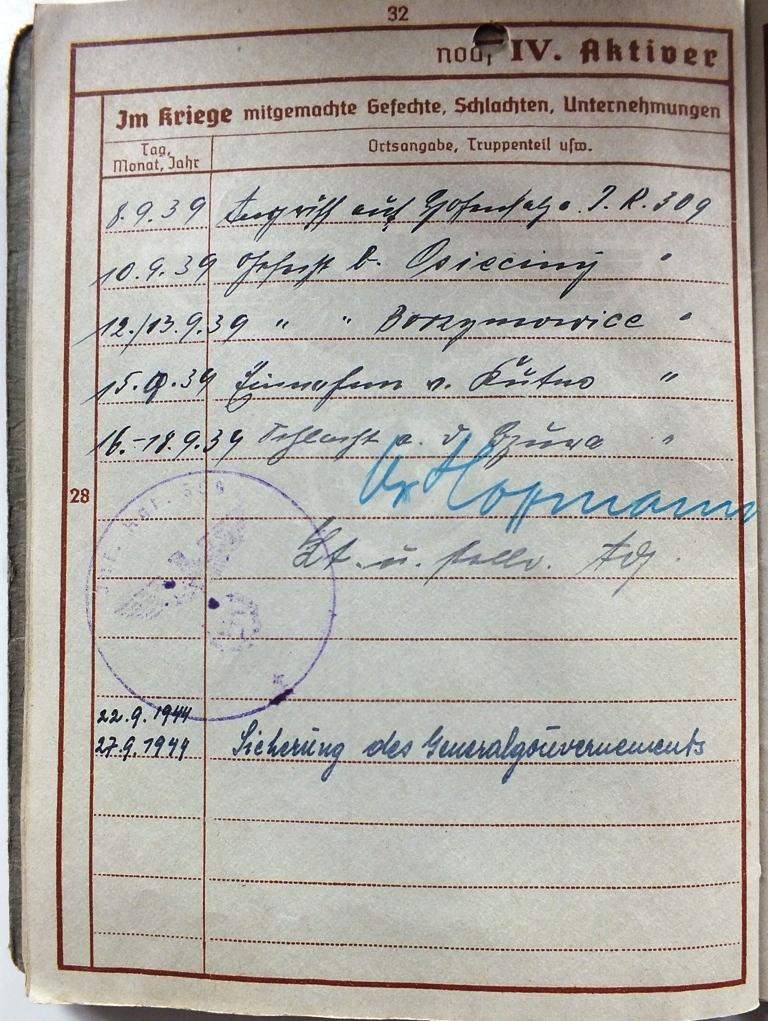 32
noch IV. Aktiver
Im Kriege mitgemachte Gefechte, Schlachten, Unternehmungen
Tag, Monat, Jahr
Ortsangabe, Truppenteil usw.
8.9.39 Angriff auf Hohensalza J. R. 309
10.9.39 Gefecht b. Osieciny "
12./13.9.39 " " Borzymowice "
15.9.39 Einnahme v. Kutno "
16.-18.9.39 Schlacht a. d. Bzura "
28
Hoffmann
Lt. u. stellv. Adj.
22.9.1944
27.9.1944 Sicherung des Generalgouvernements